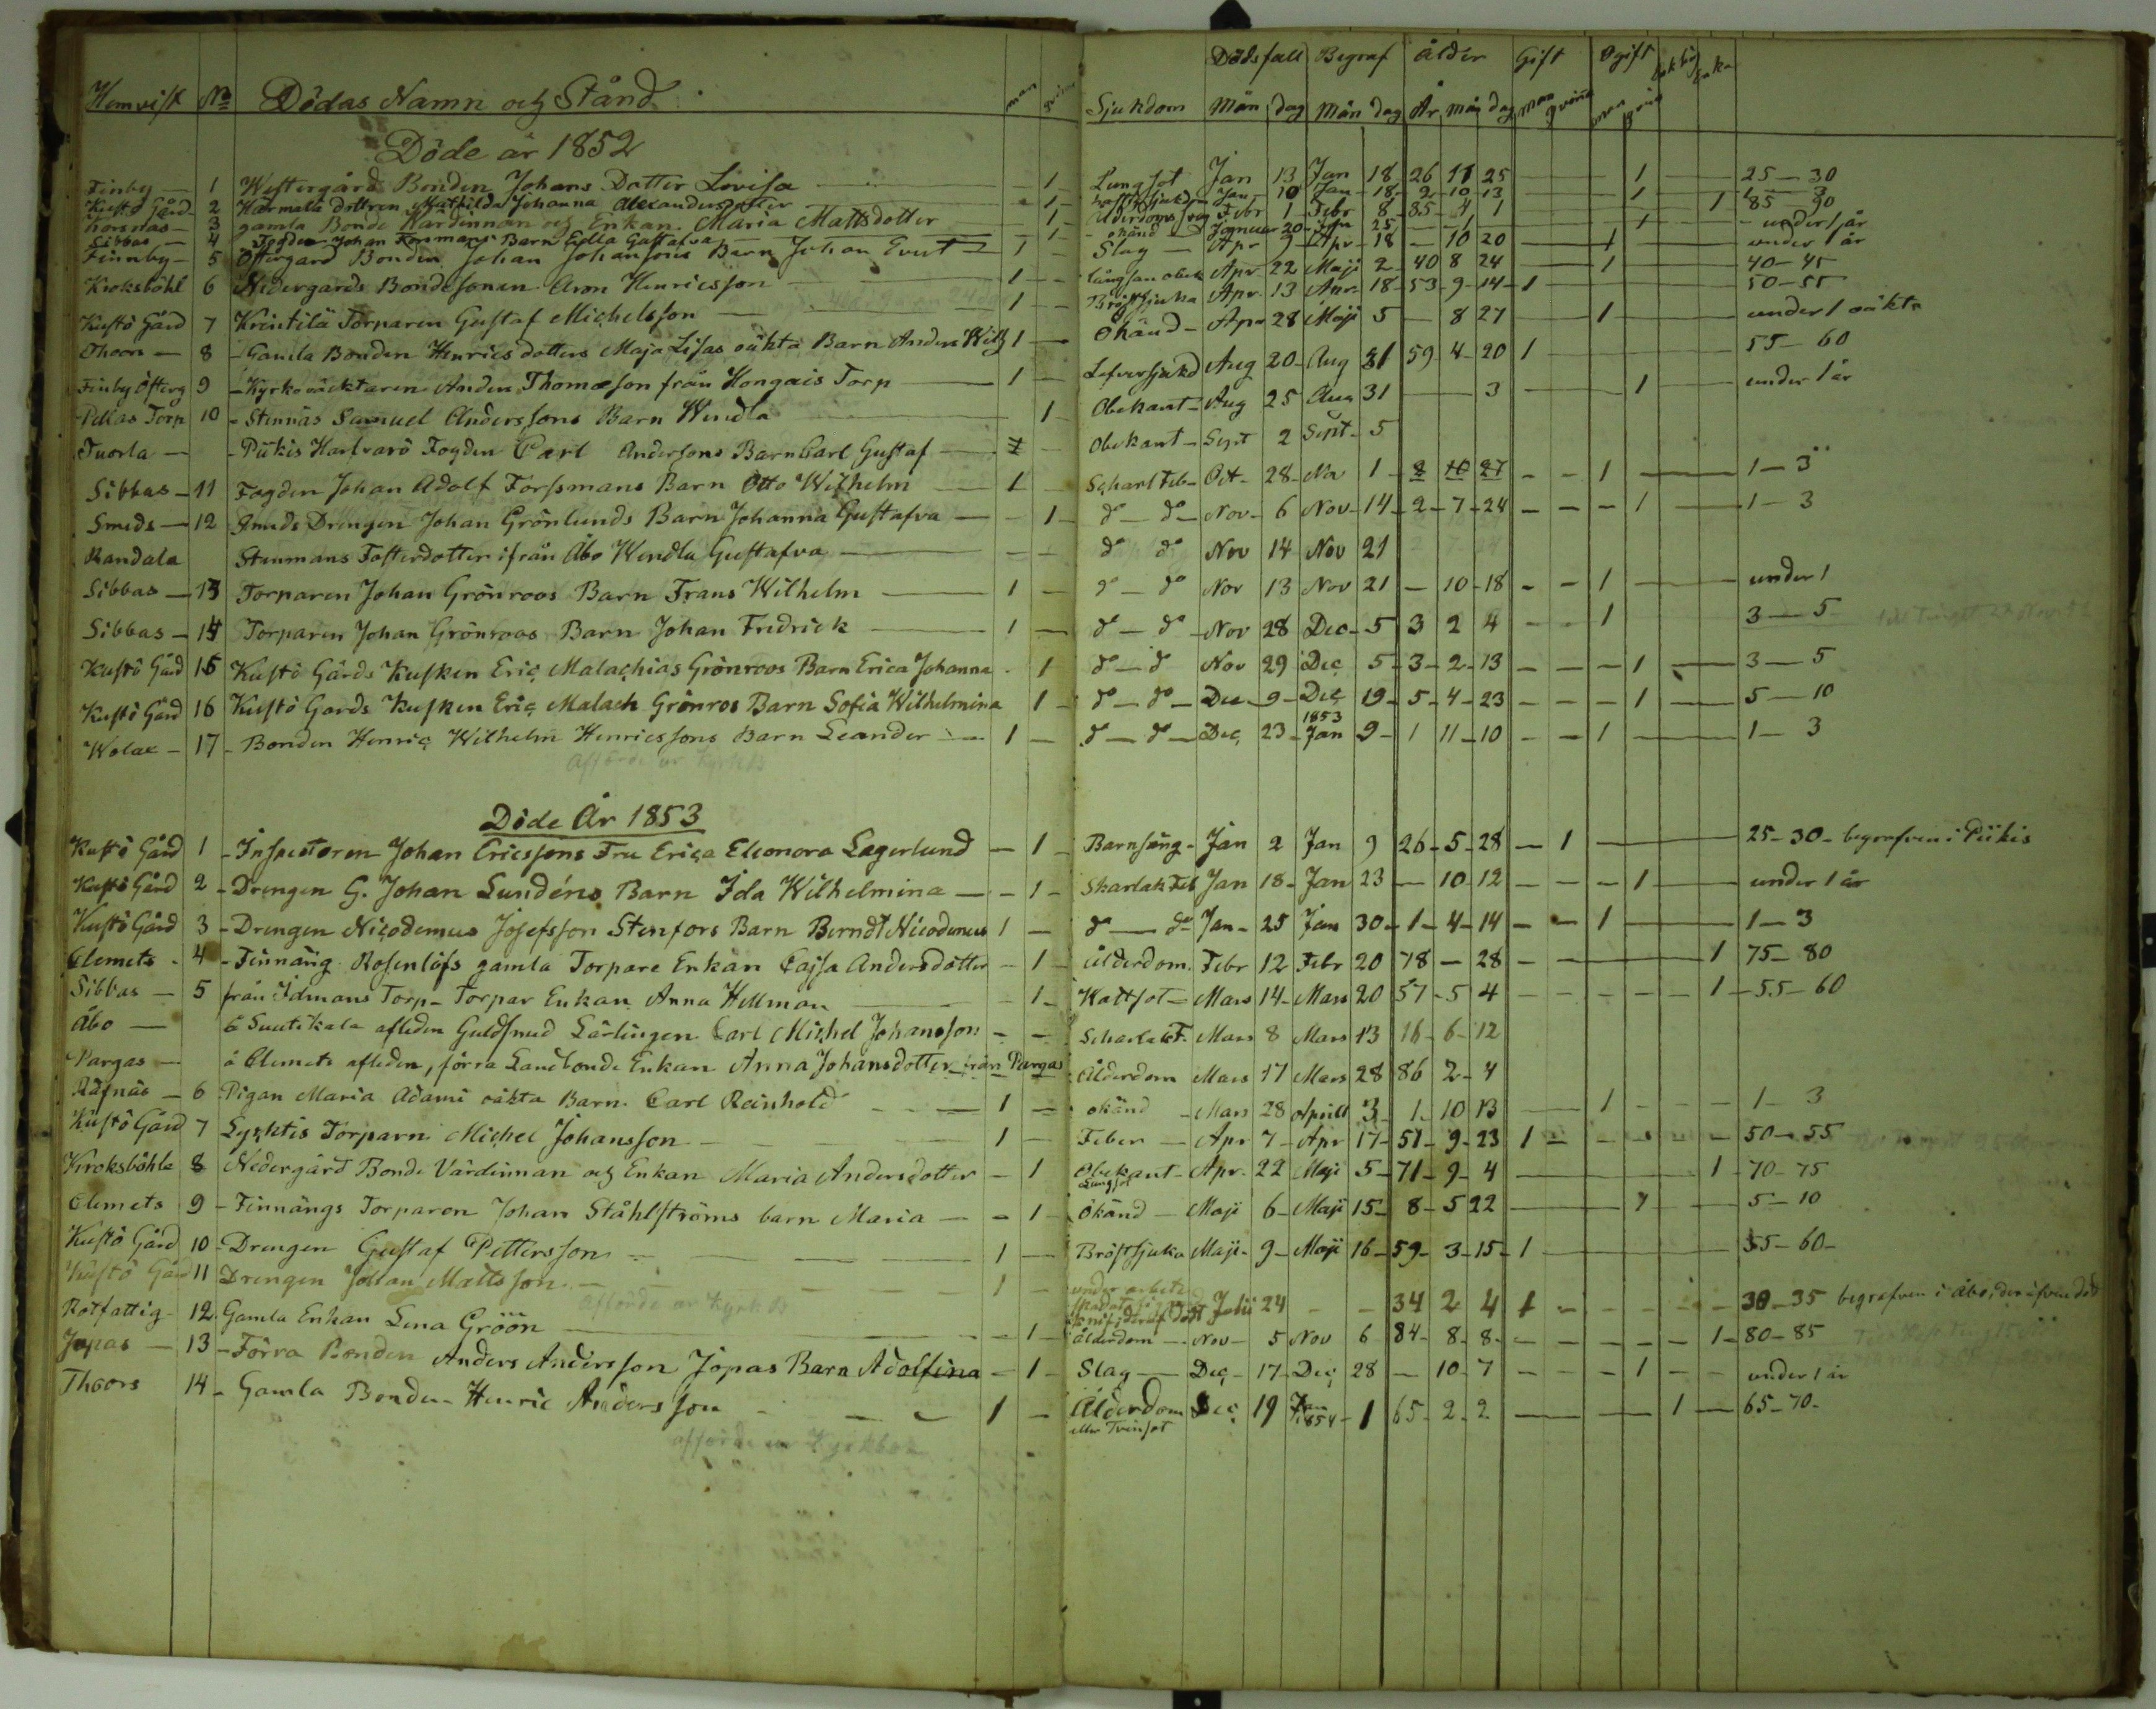 Hemvist No Dödas Namn och Stånd man qvinna Sjukdom Dödsfall Mån dag Begraf Mån dag ålder År mån dag Gift man qvinna Ogift man qvin Enka
Döde år 1852
Finby — 1 Westergårds Bonden Johans Dotter Lovisa — 1 Lungsot Jan 13 Jan 18 26 11 25 1 25—30
Kustö Gård 2 Mathilda Johanna Alexandersdotter 1 Jan 10 Jan 18 2 10 13 1 1—3
3 gamla Bonde Wärdinnan och Enkan Maria Mattsdotter 1 Ålderdoms Febr 1 Febr 8 85 4 1 1 85—90
Sibbas — 4 Fogden Johan Forsmans Barn Edla Gustafva 1 okänd Januar 20 Jan 25 1 1 under 1 år
Finnby — 5 Östergård Bonden Johan Johansons Barn Johan Evert 1 Slag Apr 9 Apr 18 — 10 20 1 under 1 år
Kroksböhl 6 Nedergårds Bondesonen Aron Henricsson 1 Apr 22 Maji 2 40 8 24 1 40—45
Kustö Gård 7 Krintilä Torparen Gustaf Michelsson 1 Bröstsjuka Apr. 13 Apr. 18 53 9 14 1 50—55
Thoors — 8 Gamla Bonden Henrics dotters Maja Lisas oäkta Barn Anders Wilh 1 Okänd Apr 28 Maji 5 — 8 27 1 under 1 oäkta
Finby Österg 9 Kyrkoväcktaren Anders Thomæson från Hongais Torp 1 Lefversjukd Aug 20 Aug 31 59 4 20 1 55—60
Pellas Torp 10 Stennäs Samuel Anderssons Barn Wendla 1 Obekant Aug 25 Aug 31 3 1 under 1 år
Tuorla — Pikis Harfvarö Fogden Carl Andersons Barn Carl Gustaf 1 Obekant Sept 2 Sept 5
Sibbas — 11 Fogden Johan Adolf Forssmans Barn Otto Wilhelm 1 Scharl Feb Oct 28 Nov 1 2 10 27 1 1—3
Smeds — 12 Smeds Drengen Johan Grönlunds Barn Johanna Gustafva 1 do — do Nov 6 Nov 14 2 7 24 1 1—3
Randala Stenmans Fosterdotter ifrån Åbo Wendla Gustafva do do Nov 14 Nov 21
Sibbas — 13 Torparen Johan Grönroos Barn Frans Wilhelm 1 do — do Nov 13 Nov 21 — 10 18 1 under 1
Sibbas — 14 Torparen Johan Grönroos Barn Johan Fredrick 1 do — do Nov 28 Dec 5 3 2 4 1 3—5
Kustö Gård 15 Kustö Gårds Kusken Eric Malachias Grönroos Barn Erica Johanna 1 do — do Nov 29 Dec 5 3 2 13 1 3—5
Kustö Gård 16 Kustö Gards Kusken Eric Malach Grönros Barn Sofia Wilhelmina 1 do — do Dec 9 Dec 19 5 4 23 1 5—10
Wolax — 17 Bonden Henric Wilhelm Henricssons Barn Leander 1 do — do Dec 23 1853 Jan 9 1 11 10 1 1—3
Afförde ur KyrkB
Döde År 1853
Kustö Gård 1 Inspectoren Johan Ericssons Fru Erica Eleonora Lagerlund 1 Barnsäng Jan 2 Jan 9 26 5 28 1 25—30 begrafven i Piikis
Kustö Gård 2 Drengen G. Johan Lundéns Barn Ida Wilhelmina 1 Skarlak Feb Jan 18 Jan 23 — 10 12 1 under 1 år
Kustö Gård 3 Drengen Nicodemus Josefsson Stenfors Barn Berndt Nicodemus 1 do — do Jan 25 Jan 30 1 4 14 1 1—3
Clemets 4 Finnäng Rosenlöfs gamla Torpare Enkan Cajsa Andersdotter 1 ålderdom Febr 12 Febr 20 78 — 28 1 75—80
Sibbas — 5 från Idmans Torp Torpar Enkan Anna Hellman 1 Kattsot Mars 14 Mars 20 57 5 4 1 55—60
Åbo — å Suutikala afleden Guldsmed Lärlingen Carl Michel Johansson Scharlak F. Mars 8 Mars 13 16 6 12
Pargas — å Clemets afleden, förra Landbonde Enkan Anna Johansdotter från Pargas Ålderdom Mars 17 Mars 28 86 2 4
Räfnäs — 6 Pigan Maria Adami oäkta Barn Carl Reinhold 1 okänd Mars 28 Aprill 3 1 10 13 1 1—3
Kustö Gård 7 Lyhtis Torparn Michel Johansson 1 Feber Apr 7 Apr 17 51 9 23 1 50—55
Kroksböhle 8 Nedergård Bonde Värdinnan och Enkan Maria Andersdotter 1 Obekant Lungsot Apr. 22 Maji 5 71 9 4 1 70—75
Clemets 9 Finnängs Torparen Johan Ståhlströms barn Maria 1 Okänd Maji 6 Maji 15 8 5 22 1 5—10
Kustö Gård 10 Drengen Gustaf Pettersson 1 Bröstsjuka Maji 9 Maji 16 59 3 15 1 55—60
Kustö Gård 11 Drengen Johan Mattsson 1 under arbete knif, deraf död Julii 24 34 2 4 1 30—35 begrafven i Åbo, der äfven död
Afförde ur Kyrk B
Rotfattig 12 Gamla Enkan Lena Gröön 1 ålderdom Nov 5 Nov 6 84 8 8 1 80—85
Jopas — 13 Förra Bonden Anders Andersson Jopas Barn Adolfina 1 Slag Dec 17 Dec 28 — 10 7 1 under 1 år
Thoors 14 Gamla Bonden Henric Andersson 1 Ålderdom eller Tvinsot Dec 19 Jan 1854 1 65 2 2 1 65—70
afförde ur Kyrkbok